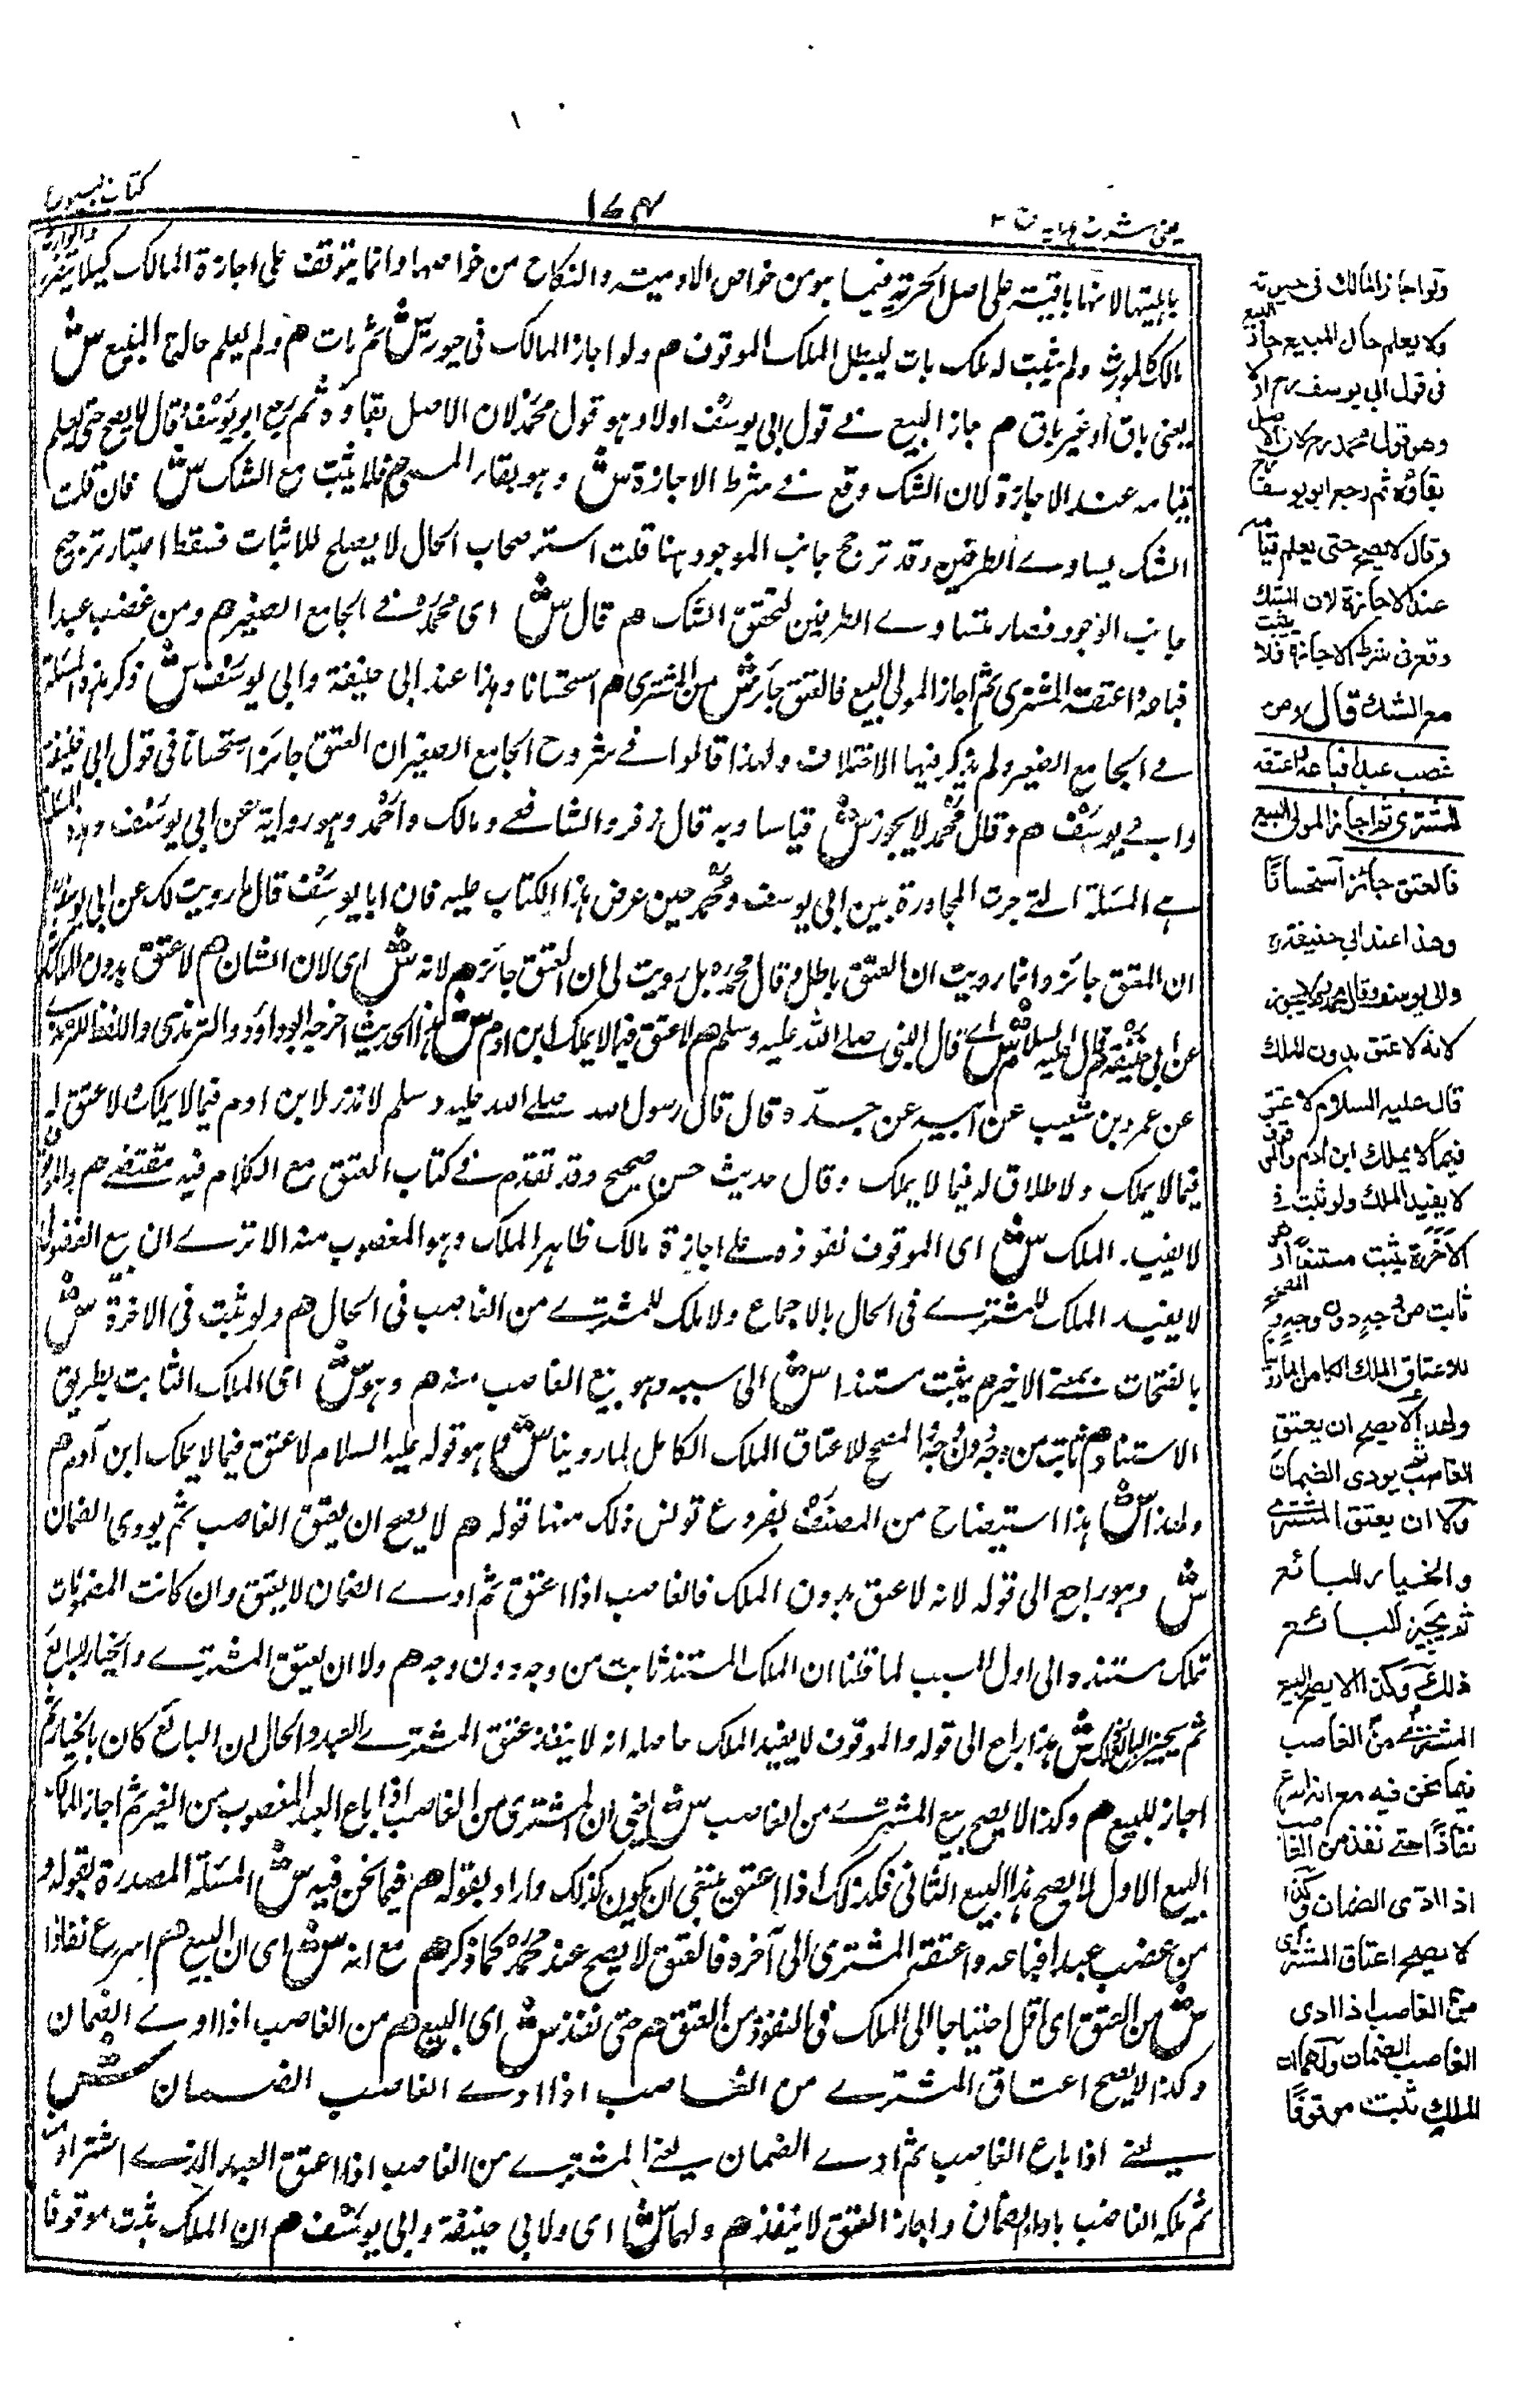 كتاب البيوع
١٧٤
عينى شرح هدايه ج ٣
باهليتها لانها باقية على اصل الحرية فيما هو من خواص الادمية والنكاح من خواصها وانما يتوقف على اجازة المالك كيلا يتضرر
مالك كالمورث ولم يثبت له ملك بات ليبطل الملك الموقوف هم ولو اجاز المالك فى حيوته ش ثم مات هم ولم يعلم حال المبيع ش
يعنى باق او غير باق هم جاز البيع فى قول ابى يوسف اولا وهو قول محمد لان الاصل بقاؤه ثم رجع ابو يوسف وقال لا يصح حتى يعلم
قيامه عند الاجازة لان الشك وقع فى شرط الاجازة ش وهو بقاء المبيع هم فلا يثبت مع الشك ش فان قلت
الشك يساوى الطرفين وقد ترجح جانب الموجود هنا قلت استصحاب الحال لا يصلح للاثبات فسقط اعتبار ترجيح
جانب الوجود فصار متساوى الطرفين لتحقق الشك هم قال ش اى محمد فى الجامع الصغير هم ومن غصب عبدا
فباعه واعتقه المشترى ثم اجاز المولى البيع فالعتق جائز ش من المشترى هم استحسانا وهذا عند ابى حنيفة وابى يوسف ش ذكر هذه المسئلة
فى الجامع الصغير ولم يذكر فيها الاختلاف ولهذا قالوا فى شروح الجامع الصغير ان العتق جائز استحسانا فى قول ابى حنيفة
وابى يوسف هم وقال محمد لا يجوز ش قياسا وبه قال زفر والشافعى ومالك واحمد وهو رواية عن ابى يوسف وهذه المسئلة
هى المسئلة التى جرت المحاورة بين ابى يوسف ومحمد حين عرض هذا الكتاب عليه فان ابا يوسف قال ما رويت لك عن ابى حنيفة
ان العتق جائز وانما رويت ان العتق باطل وقال محمد بل رويت لى ان العتق جائز هم لانه ش اى لان الشان هم لا عتق بدون الملك
عن ابى حنيفة قال عليه السلام ش اى قال النبى صلى الله عليه وسلم هم لا عتق فيما لا يملك ابن ادم ش هذا الحديث اخرجه ابو داود والترمذى واللفظ للترمذى
عن عمرو بن شعيب عن ابيه عن جده قال قال رسول الله صلى الله عليه وسلم لا نذر لابن ادم فيما لا يملك ولا عتق له
فيما لا يملك ولا طلاق له فيما لا يملك وقال حديث حسن صحيح وقد تقدم فى كتاب العتق مع الكلام فيه مقتضى هم والموقوف
لا يفيد الملك ش اى الموقوف نفوذه على اجازة مالك ظاهر الملك وهو المغصوب منه الا ترى ان بيع الفضولى
لا يفيد الملك للمشترى فى الحال بالاجماع ولا ملك للمشترى من الغاصب فى الحال هم ولو ثبت فى الاخرة ش
بالفتحات بمعنى الاخير هم يثبت مستندا ش الى سببه وهو بيع الغاصب منه هم وهو ش اى الملك الثابت بطريق
الاستناد هم ثابت من وجه دون وجه والمصحح للاعتاق الملك الكامل لما روينا ش ما هو قوله عليه السلام لا عتق فيما لا يملك ابن آدم هم
ولهذا ش هذا استيضاح من المصنف بفروع تونس ذلك منها قوله هم لا يصح ان يعتق الغاصب ثم يودى الضمان
ش وهو راجع الى قوله لانه لا عتق بدون الملك فالغاصب اذا اعتق ثم ادى الضمان لا يعتق وان كانت المضمونات
تملك مستندة الى اول السبب لما قلنا ان الملك المستند ثابت من وجه دون وجه هم ولا ان يعتق المشترى والخيار للبائع
ثم يجيز البائع ذلك ش هذا راجع الى قوله والموقوف لا يفيد الملك حاصله انه لا ينفذ عتق المشترى العبد والحال ان البائع كان بالخيار ثم
اجاز البيع هم وكذا لا يصح بيع المشترى من الغاصب ش اعنى ان المشترى من الغاصب اذا باع العبد المغصوب من الغير ثم اجاز المالك
البيع الاول لا يصح هذا البيع الثانى فكذلك اذا اعتق ينبغى ان يكون كذلك واراد بقوله هم فيما نحن فيه ش المسئلة المصدرة بقوله و
من غصب عبدا فباعه واعتقه المشترى الى آخره فالعتق لا يصح عند محمد كما ذكر هم مع انه ش اى ان البيع هم اسرع نفاذا
ش من العتق اى اقل احتياجا الى الملك فى النفوذ من العتق هم حتى نفذ ش اى البيع هم من الغاصب اذا ادى الضمان
وكذا لا يصح اعتاق المشترى من الغاصب اذا ادى الغاصب الضمان ش
يعنى اذا باع الغاصب ثم ادى الضمان يعنى المشترى من الغاصب اذا اعتق العبد الذى اشتراه منه
ثم ملكه الغاصب باداء الضمان واجاز العتق لا ينفذ هم ولهما ش اى ولابى حنيفة وابى يوسف هم ان الملك ثبت موقوفا
ولو اجاز المالك فى حيوته
ولا يعلم حال المبيع جاز البيع
فى قول ابى يوسف رح اولا
وهو قول محمد رح لان الاصل
بقاؤه ثم رجع ابو يوسف رح
وقال لا يصح حتى يعلم قيامه
عند الاجازة لان الشك
وقع فى شرط الاجازة فلا يثبت
مع الشك قال ومن
غصب عبدا فباعه واعتقه
المشترى ثم اجاز المولى البيع
فالعتق جائز استحسانًا
وهذا عند ابى حنيفة رح
وابى يوسف وقال محمد رح لا يجوز
لانه لا عتق بدون الملك
قال عليه السلام لا عتق
فيما لا يملك ابن ادم والموقوف
لا يفيد الملك ولو ثبت فى
الاخرة يثبت مستندًا وهو
ثابت من وجه دون وجه والمصحح
للاعتاق الملك الكامل لما روينا
ولهذا لا يصح ان يعتق
الغاصب ثم يودى الضمان
ولا ان يعتق المشترى
والخيار للبائع
ثم يجيز البائع
ذلك وكذا لا يصح بيع
المشترى من الغاصب
فيما نحن فيه مع انه اسرع
نفاذًا حتى نفذ من الغاصب
اذا ادى الضمان وكذا
لا يصح اعتاق المشترى
من الغاصب اذا ادى
الغاصب الضمان ولهما ان
الملك ثبت موقوفًا